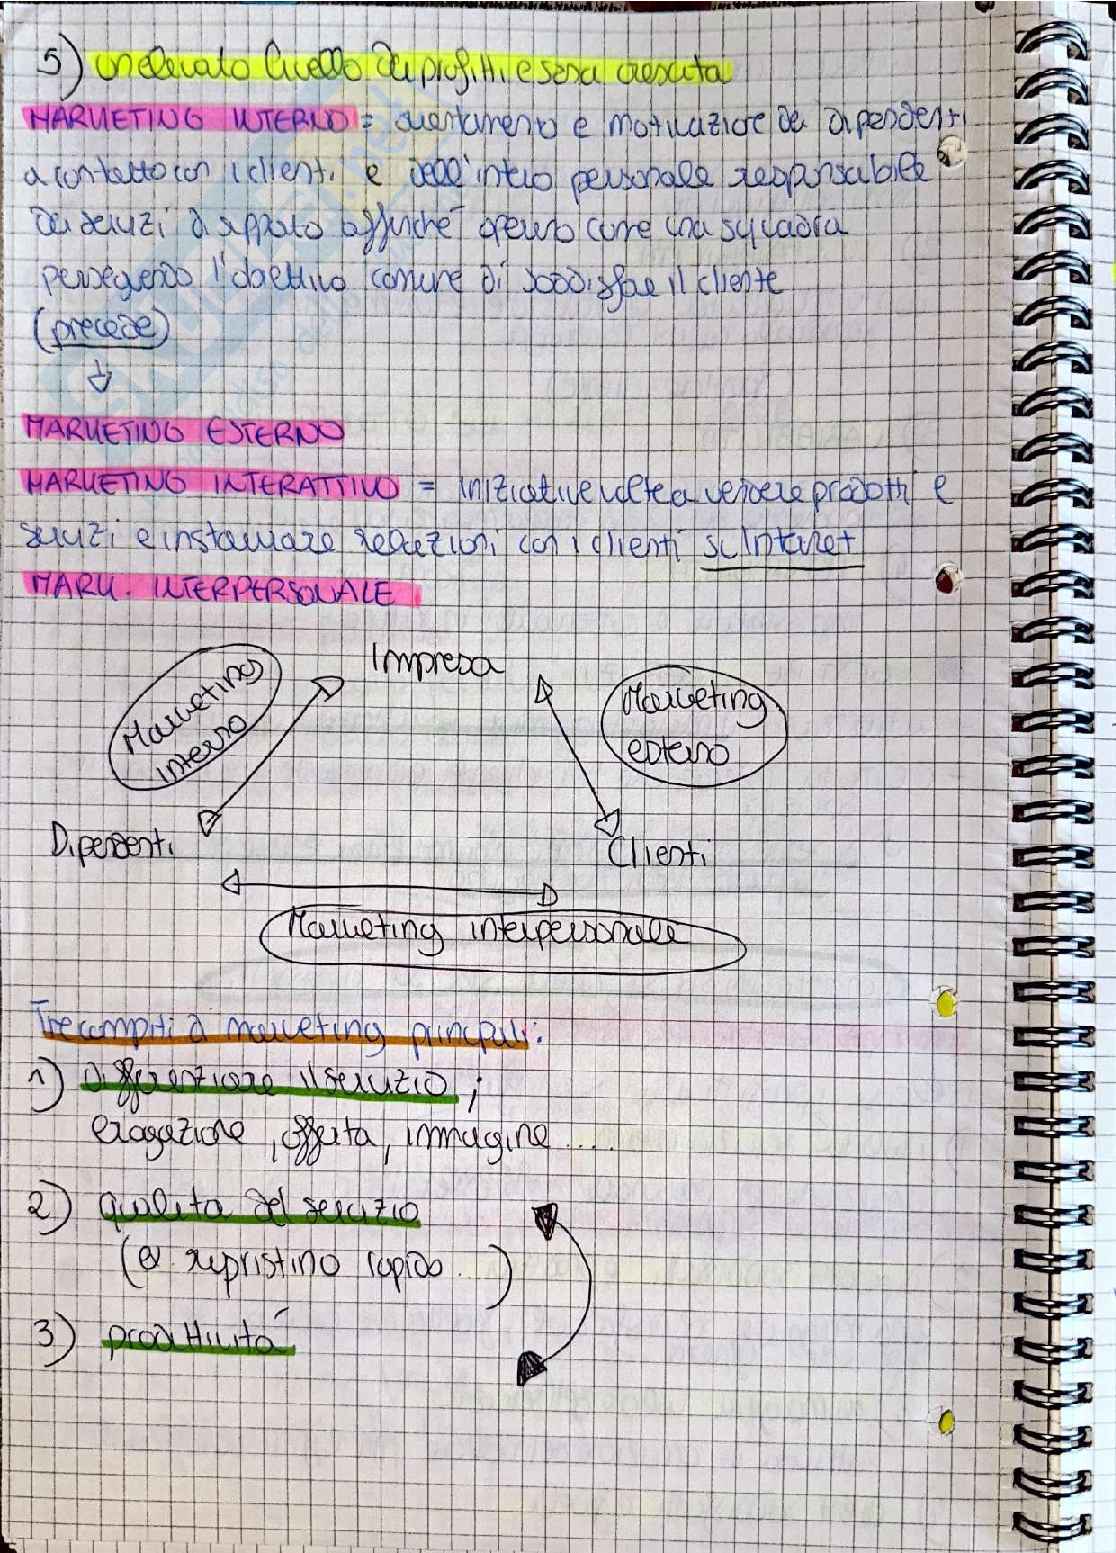 5) un elevato livello di profitti e sana crescita
MARKETING INTERNO = orientamento e motivazione dei dipendenti
a contatto con i clienti e dell'intero personale responsabile
dei servizi di supporto affinché operino come una squadra
perseguendo l'obiettivo comune di soddisfare il cliente
(precede)
MARKETING ESTERNO
MARKETING INTERATTIVO = iniziative volte a vendere prodotti e
servizi e instaurare relazioni con i clienti su Internet
MARK. INTERPERSONALE
Impresa
Marketing
interno
Marketing
esterno
Dipendenti
Clienti
Marketing interpersonale
Tre compiti di marketing principali:
1) Differenziare il servizio ;
erogazione, offerta, immagine ....
2) qualità del servizio
(es. ripristino rapido ...)
3) produttività